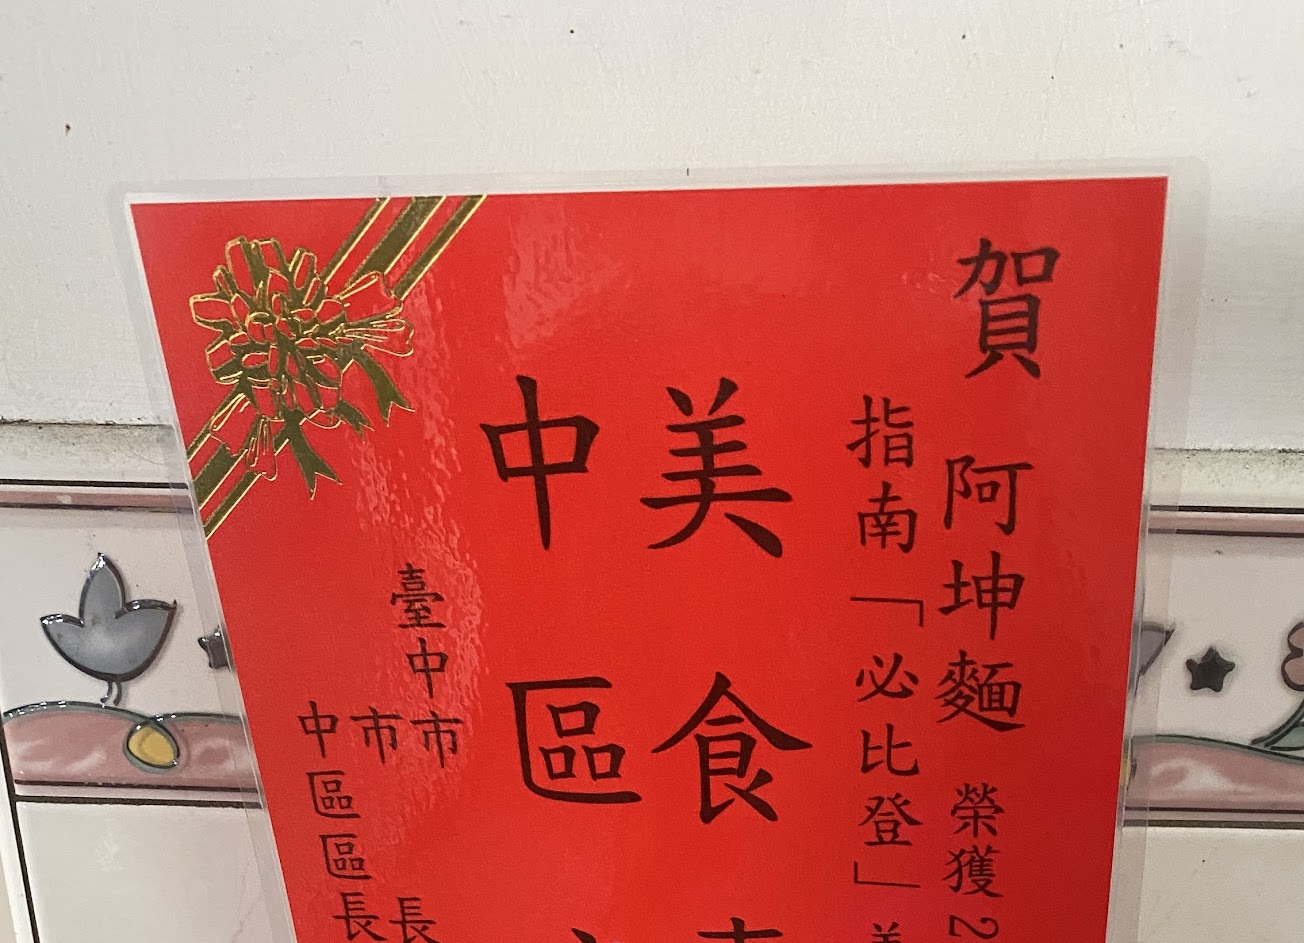 賀 阿坤麵 榮獲2
指南「必比登」
美食
中區
臺中市
市長
中區區長